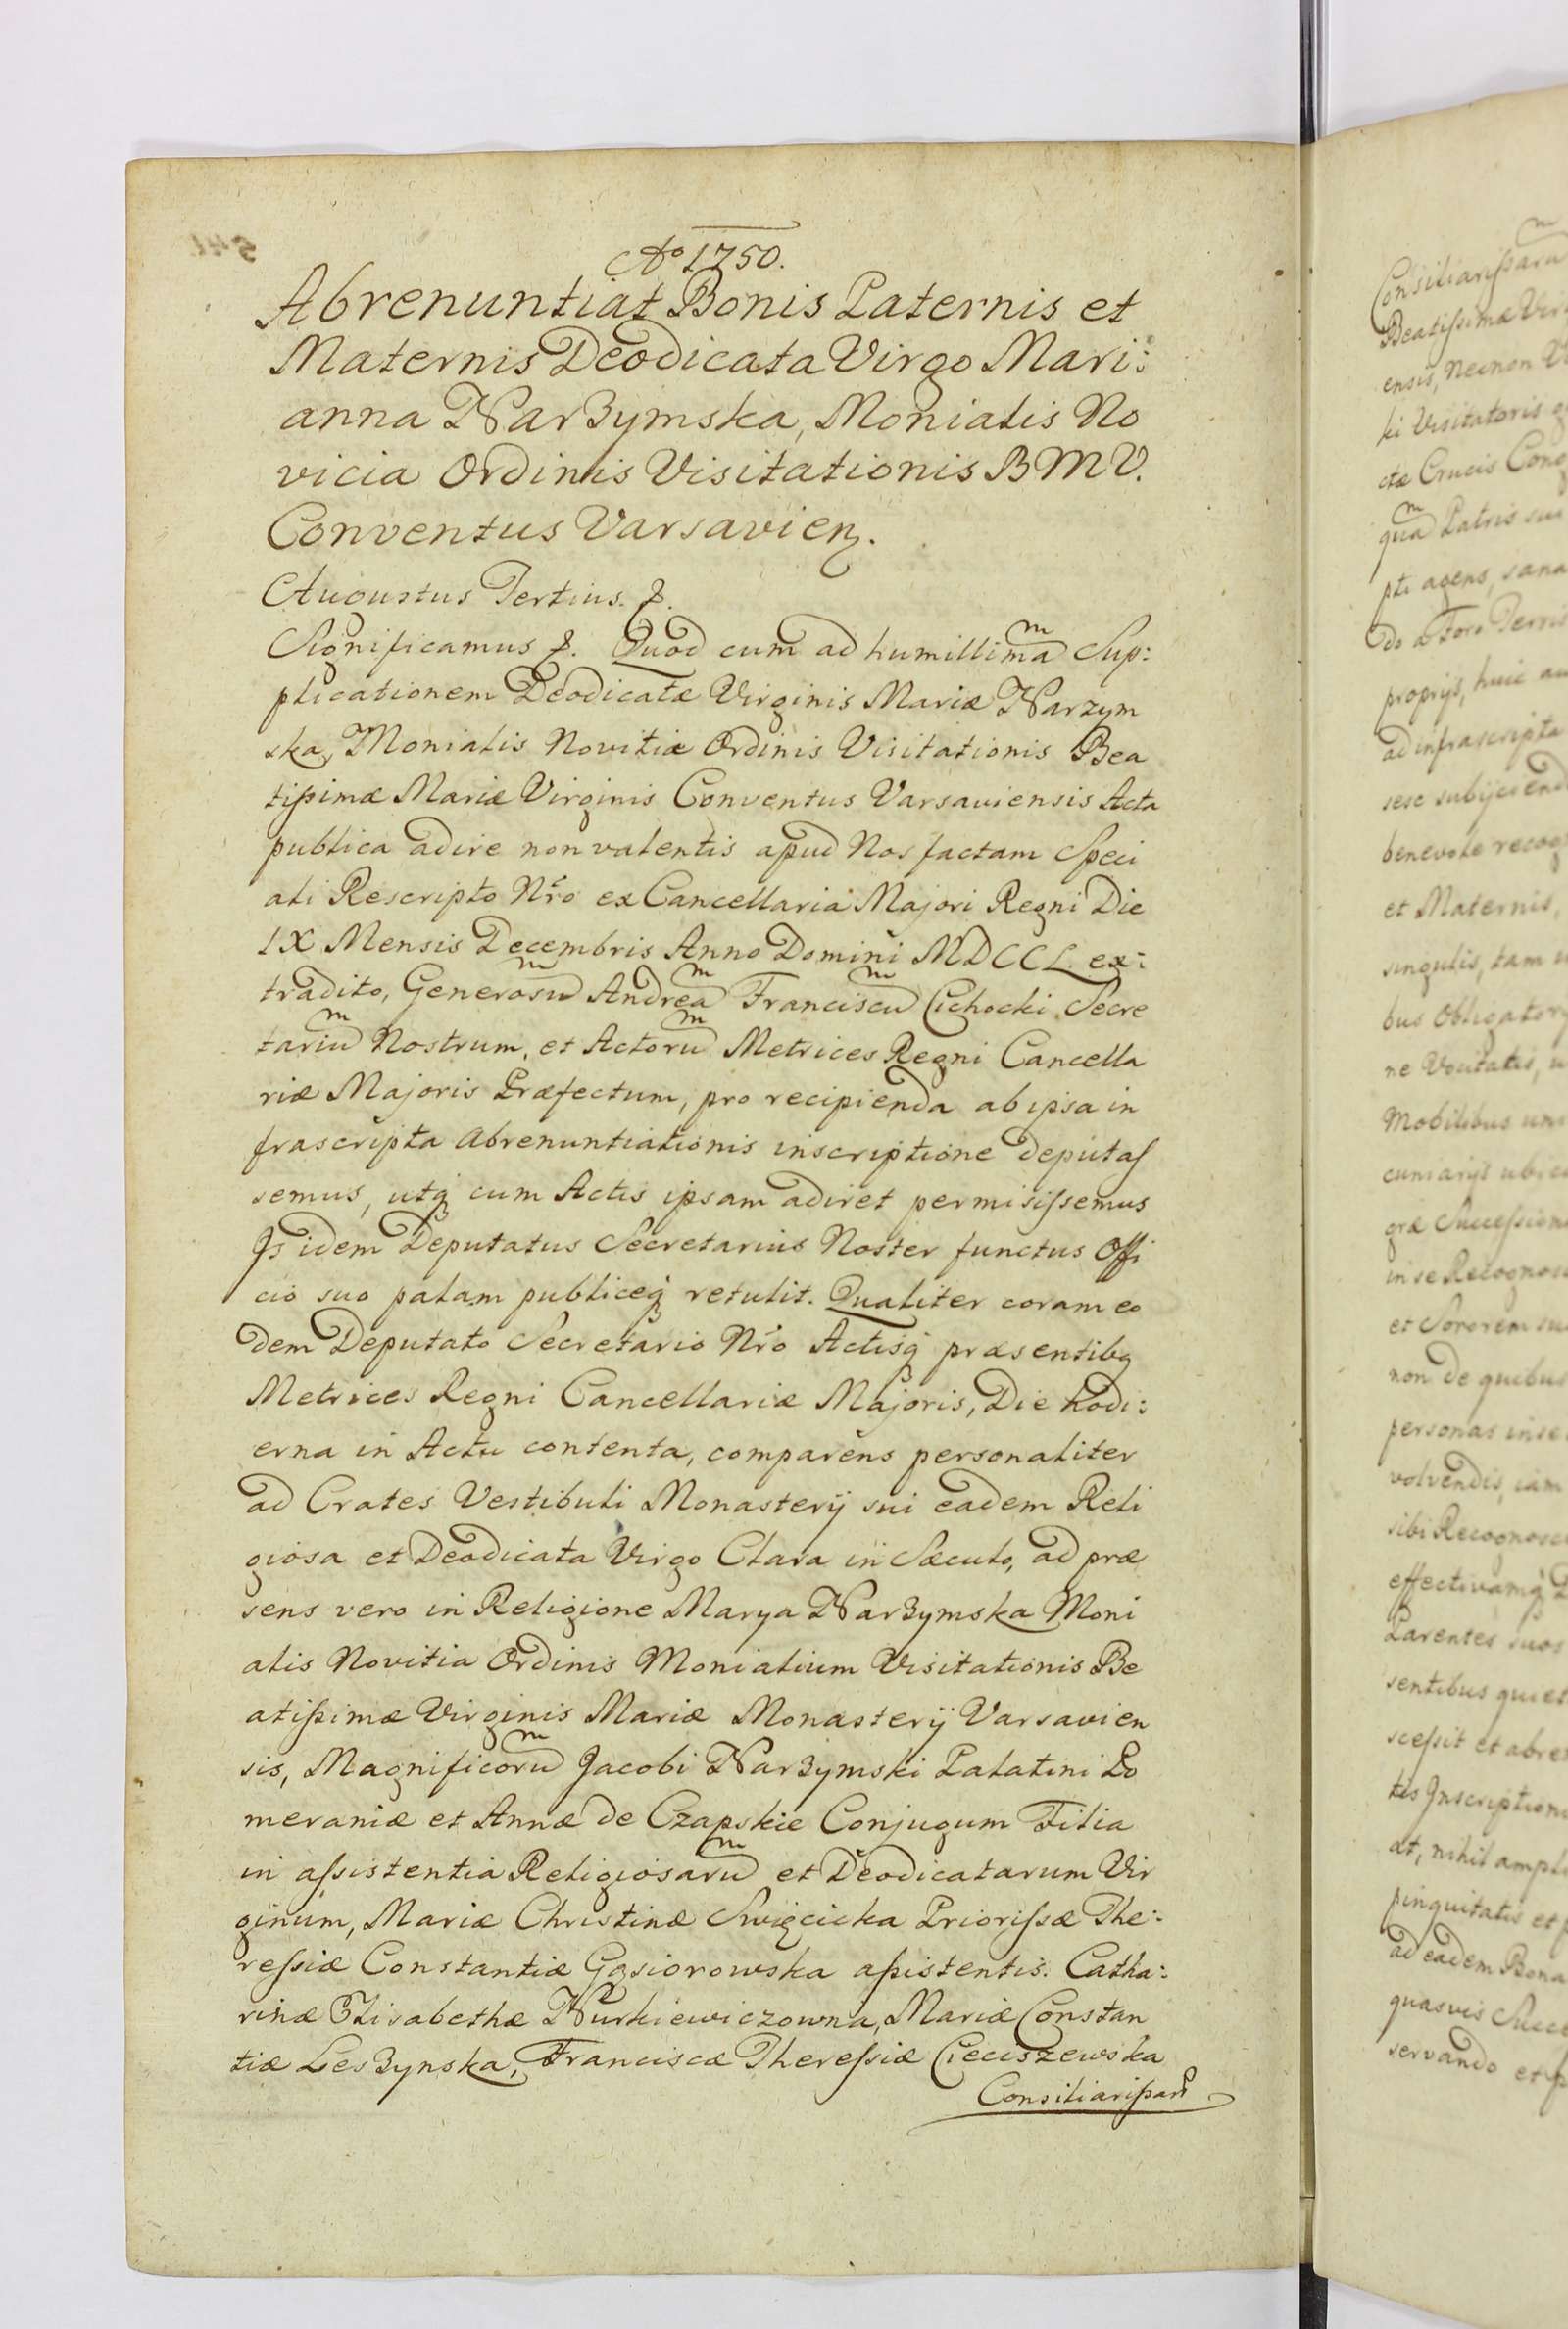 Ao 1750.
Abrenuntiat Bonis Paternis et
Maternis Deodicata Virgo Mari:
anna Narzymska, Monialis No
vicia Ordinis Visitationis BMV.
Conventus Varsavien.
Augustus Tertius. &.
Significamus &. Quod cum ad humillimam Sup:
plicationem Deodicatæ Virginis Mariæ Narzym
ska, Monialis Novitiæ Ordinis Visitationis Bea
tißimæ Mariæ Virginis Conventus Varsaviensis Acta
publica adire non valentis apud Nos factam Speci
ali Rescripto Nřo ex Cancellaria Majori Regni Die
IX Mensis Decembris Anno Domini MDCCL ex:
tradito, Generosum Andream Franciscum Cichocki Secre
tarium Nostrum, et Actorum Metrices Regni Cancella
riæ Majoris Præfectum, pro recipienda ab ipsa in
frascripta Abrenuntiationis inscriptione deputaſ
semus, utq cum Actis ipsam adiret permisiſsemus
Is idem Deputatus Secretarius Noster functus Offi
cio suo palam publiceq retulit. Qualiter coram eo
dem Deputato Secretario Nřo Actisq præsentibq
Metrices Regni Cancellariæ Majoris, Die hodi:
erna in Actu contenta, comparens personaliter
ad Crates Vestibuli Monasterij sui eadem Reli
giosa et Deodicata Virgo Clara in Sæculo, ad præ
sens vero in Religione Marya Narzymska Moni
alis Novitia Ordinis Monialium Visitationis Be
atißimæ Virginis Mariæ Monasterij Varsavien
sis, Magnificorum Jacobi Narzymski Palatini Po
meraniæ et Annæ de Czapskie Conjugum Filia
in aſsistentia Religiosarum et Deodicatarum Vir
ginum, Mariæ Christinæ Swięcicka Prioriſsæ The:
reſsiæ Constantiæ Gąsiorowska aßistentis. Catha:
rinæ Elisabethæ Nurkiewiczowna, Mariæ Constan
tiæ Leszynska, Franciscæ Thereſsiæ Cieciszewska
Consiliarißarum
Consiliariſsarum
Beatiſsimæ Vir
ensis, Necnon
ki Visitatoris
ctæ Crucis Cong
quam Patris sui
pti agens, sana
do a Foro
proprijs, huic au
ad infrascripta
sese subijciend
benevole recog
et Maternis,
singulis, tam
bus Obligator
ne Vocitatis,
Mobilibus
græ Succeſsion
in se Recognos
et Sororem su
non de quibus
personas in se
volvendis, iam
sibi Recognosc
effectivamq
Parentes suos
sentibus quiet
sceſsit et abre
tis Inscription
at, nihil ampli
pinguitatis et
ad eadem Bona
quasvis Succe
servando et